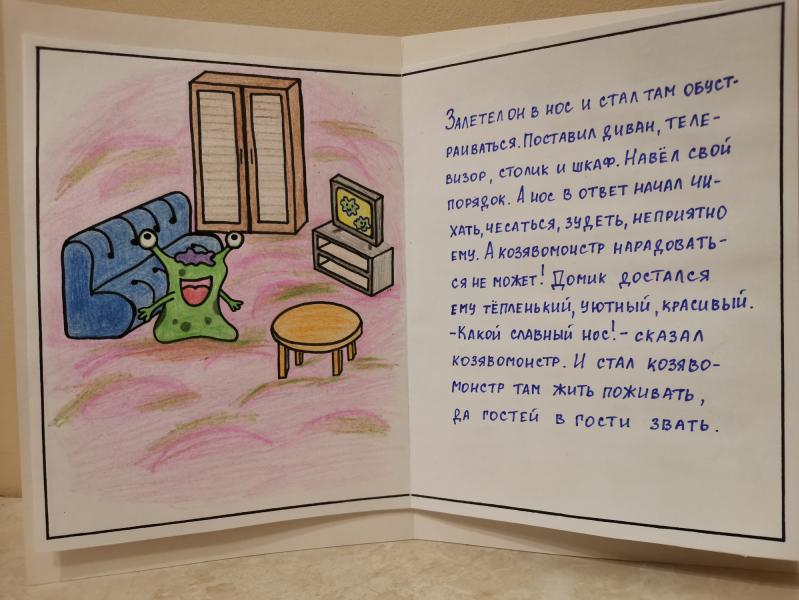 Залетел он в нос и стал там обуст-
раиваться. Поставил диван, теле-
визор, столик и шкаф. Навёл свой
порядок. А нос в ответ начал чи-
хать, чесаться, зудеть, неприятно
ему. А козявомонстр нарадовать-
ся не может! Домик достался
ему тёпленький, уютный, красивый.
-Какой славный нос!- сказал
козявомонстр. И стал козяво-
монстр там жить поживать,
да гостей в гости звать.